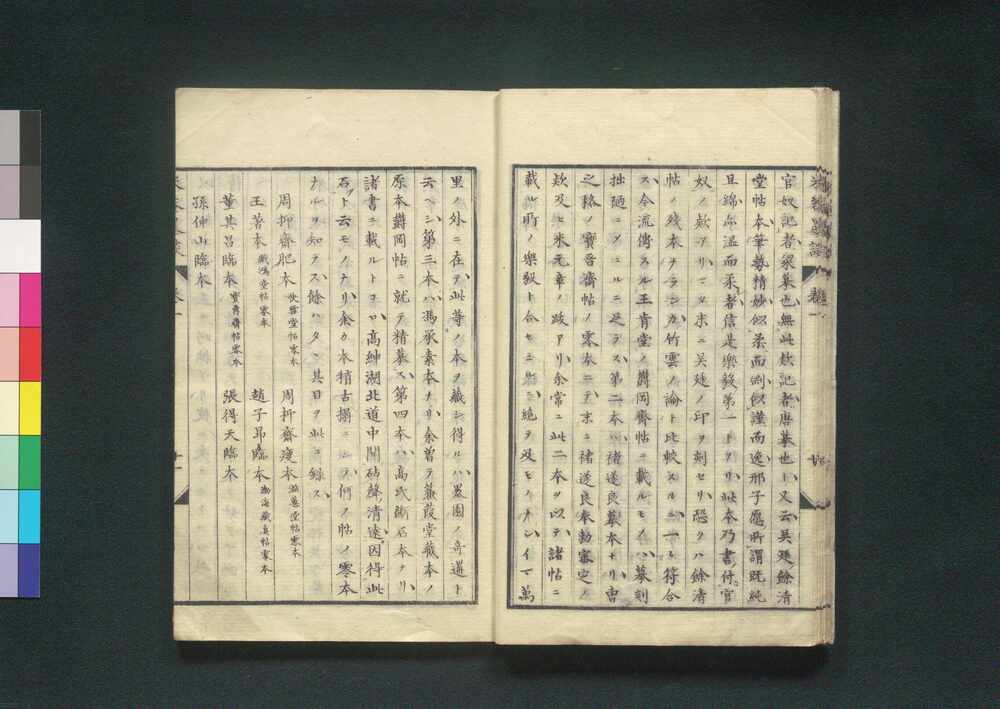 官奴記者梁摹也無此款記者唐摹也ト又云呉廷餘清
堂帖本筆勢精妙似柔而剛似謹而逸邢子愿所謂既純
且綿亦溫而柔者信是樂毅第一トアリ此本乃書付官
奴ノ款アリマタ末ニ呉廷ノ印ヲ刻セリ恐クハ餘清
帖ノ残本ナランカ竹雲ノ論ト比較スルニ一一符合
ス今流傳スル王肯堂ノ欝岡齊帖ニ載ルモノハ摹刻
拙陋ニシテミルニ足ラス第二本ハ褚遂良摹本ナリ曹
之格ノ寶晉齋帖ノ零本ニテ末ニ褚遂良奉勅審定ノ
款及ヒ米元章ノ跋アリ余常ニ此二本ヲ以テ諸帖ニ
載ル所ノ樂毅ト合セミルニ絶テ及モノナシイマ萬
里ノ外ニ在テ此等ノ本ヲ藏シ得ルハ墨園ノ奇遇ト
云ヘシ第三本ハ馮承素本ナリ余曽テ蒹葭堂藏本ノ
原本欝岡帖ニ就テ精摹ス第四本ハ高氏斷石本ナリ
諸書ニ載ルトコロ高紳湖北道中聞砧聲清遠因得此
石ト云モノナリ余カ本稍古搨ニシテ何ノ帖ノ零本
ナルヲ知ラス餘ハタヽ其目ヲ此ニ録ス
周抑齋肥本 快雪堂帖零本 周抑齋瘦本 滋蕙堂帖零本
王著本 戯鴻堂帖零本 趙子昻臨本 渤海藏真帖零本
董其昌臨本 寶鼎齋帖零本 張得天臨本
孫仲山臨本